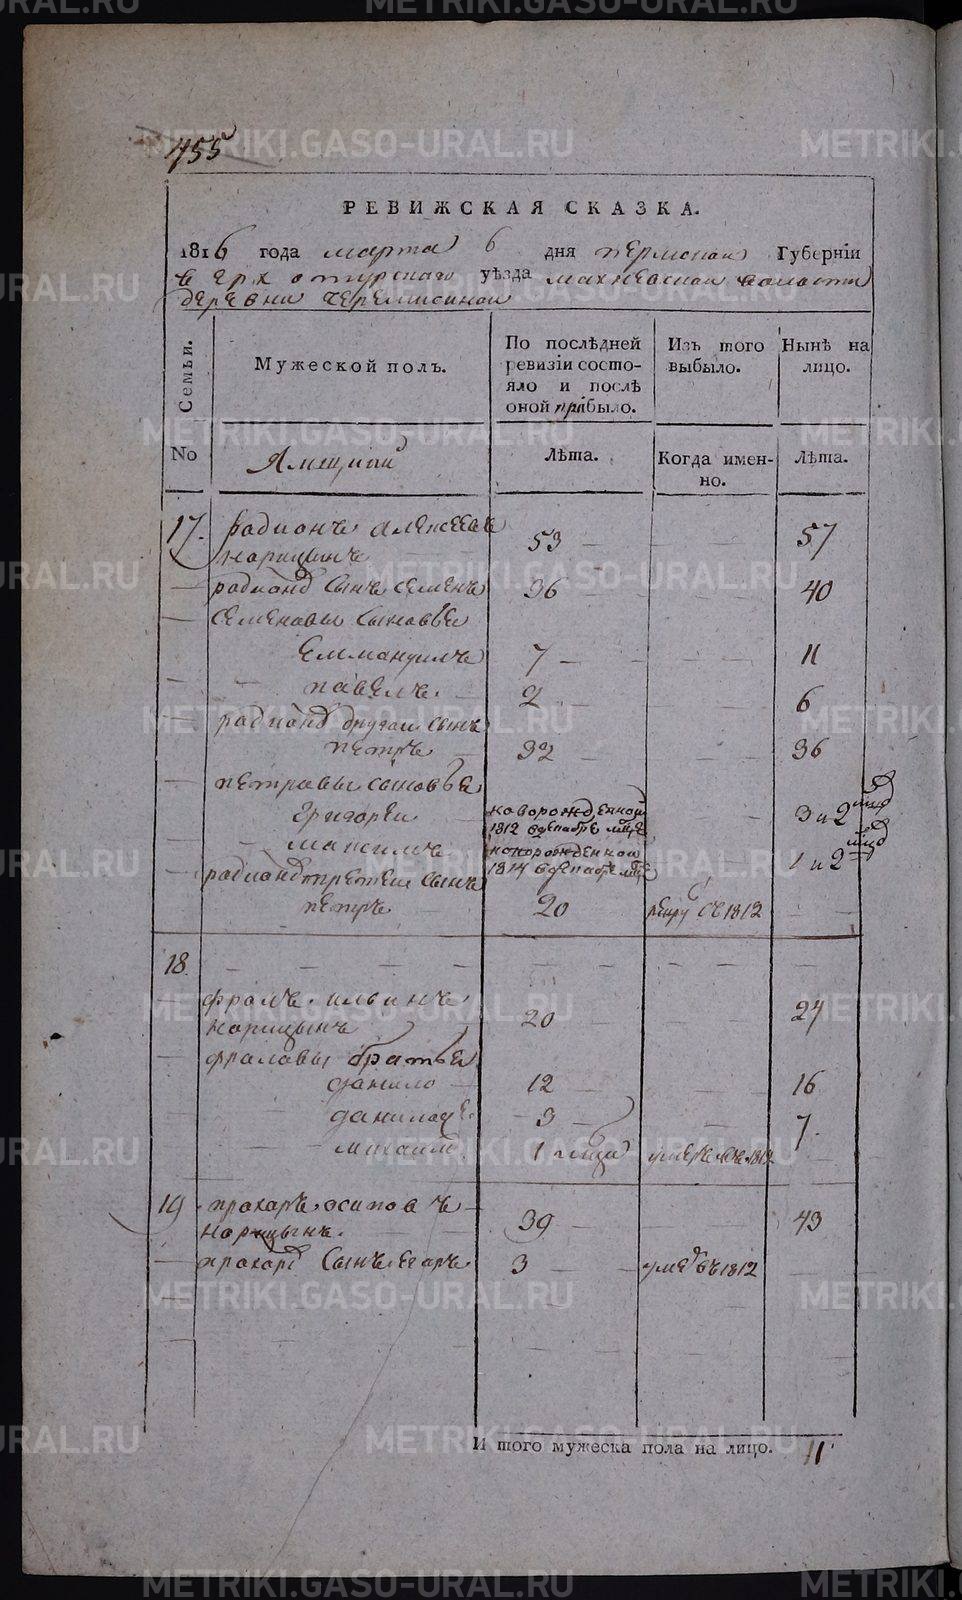 455
РЕВИЖСКАЯ СКАЗКА.
1816 года марта 6 дня пермской Губерніи
верхотурского уѣзда махневской волости
деревни черемисиной
Семьи.
Мужеской полъ.
По послѣдней ревизіи состояло и послѣ оной прибыло.
Изъ того выбыло.
Нынѣ на лицо.
No
Ямщики
Лѣта.
Когда именно.
Лѣта.
17. радионъ алексеевъ
корицынъ 53 57
радионд сынъ семенъ 36 40
семеновы сыновья
еммануилъ 7 11
павелъ 2 6
радионд другой сынъ
петръ 32 36
петровы сыновья
григореи новорожденной 1812 декабре 3 и 2
максимъ новорожденной 1814 1 и 2
радионд третеи сынъ
петръ 20 1812
18.
фролъ ильинъ
корицынъ 20 24
фроловы братья
данило 12 16
3 7
михаило 1 умре 1812
19 прохоръ осиповъ
корицынъ. 39 43
прохорд сынъ егоръ 3 умре въ 1812
И того мужеска пола на лицо. 11
METRIKI.GASO-URAL.RU